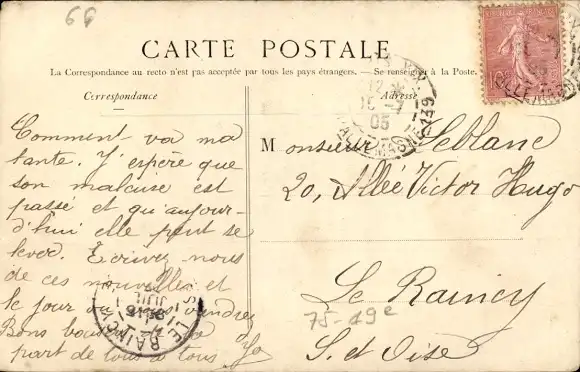 60
CARTE POSTALE
La Correspondance au recto n'est pas acceptée par tous les pays étrangers. — Se renseigner à la Poste.
Correspondance
Adresse
Comment va ma
tante. J'espère que
son malaise est
passé et qu'aujour-
d'hui elle peut se
lever. Ecrivez nous
de ces nouvelles et
le jour viendrez
Bons
part de tous à tous
Monsieur Leblanc
20, Allée Victor Hugo
Le Raincy
75-49e
S. et Oise
12
15 -7
05
LE RAINCY
JUIL
10